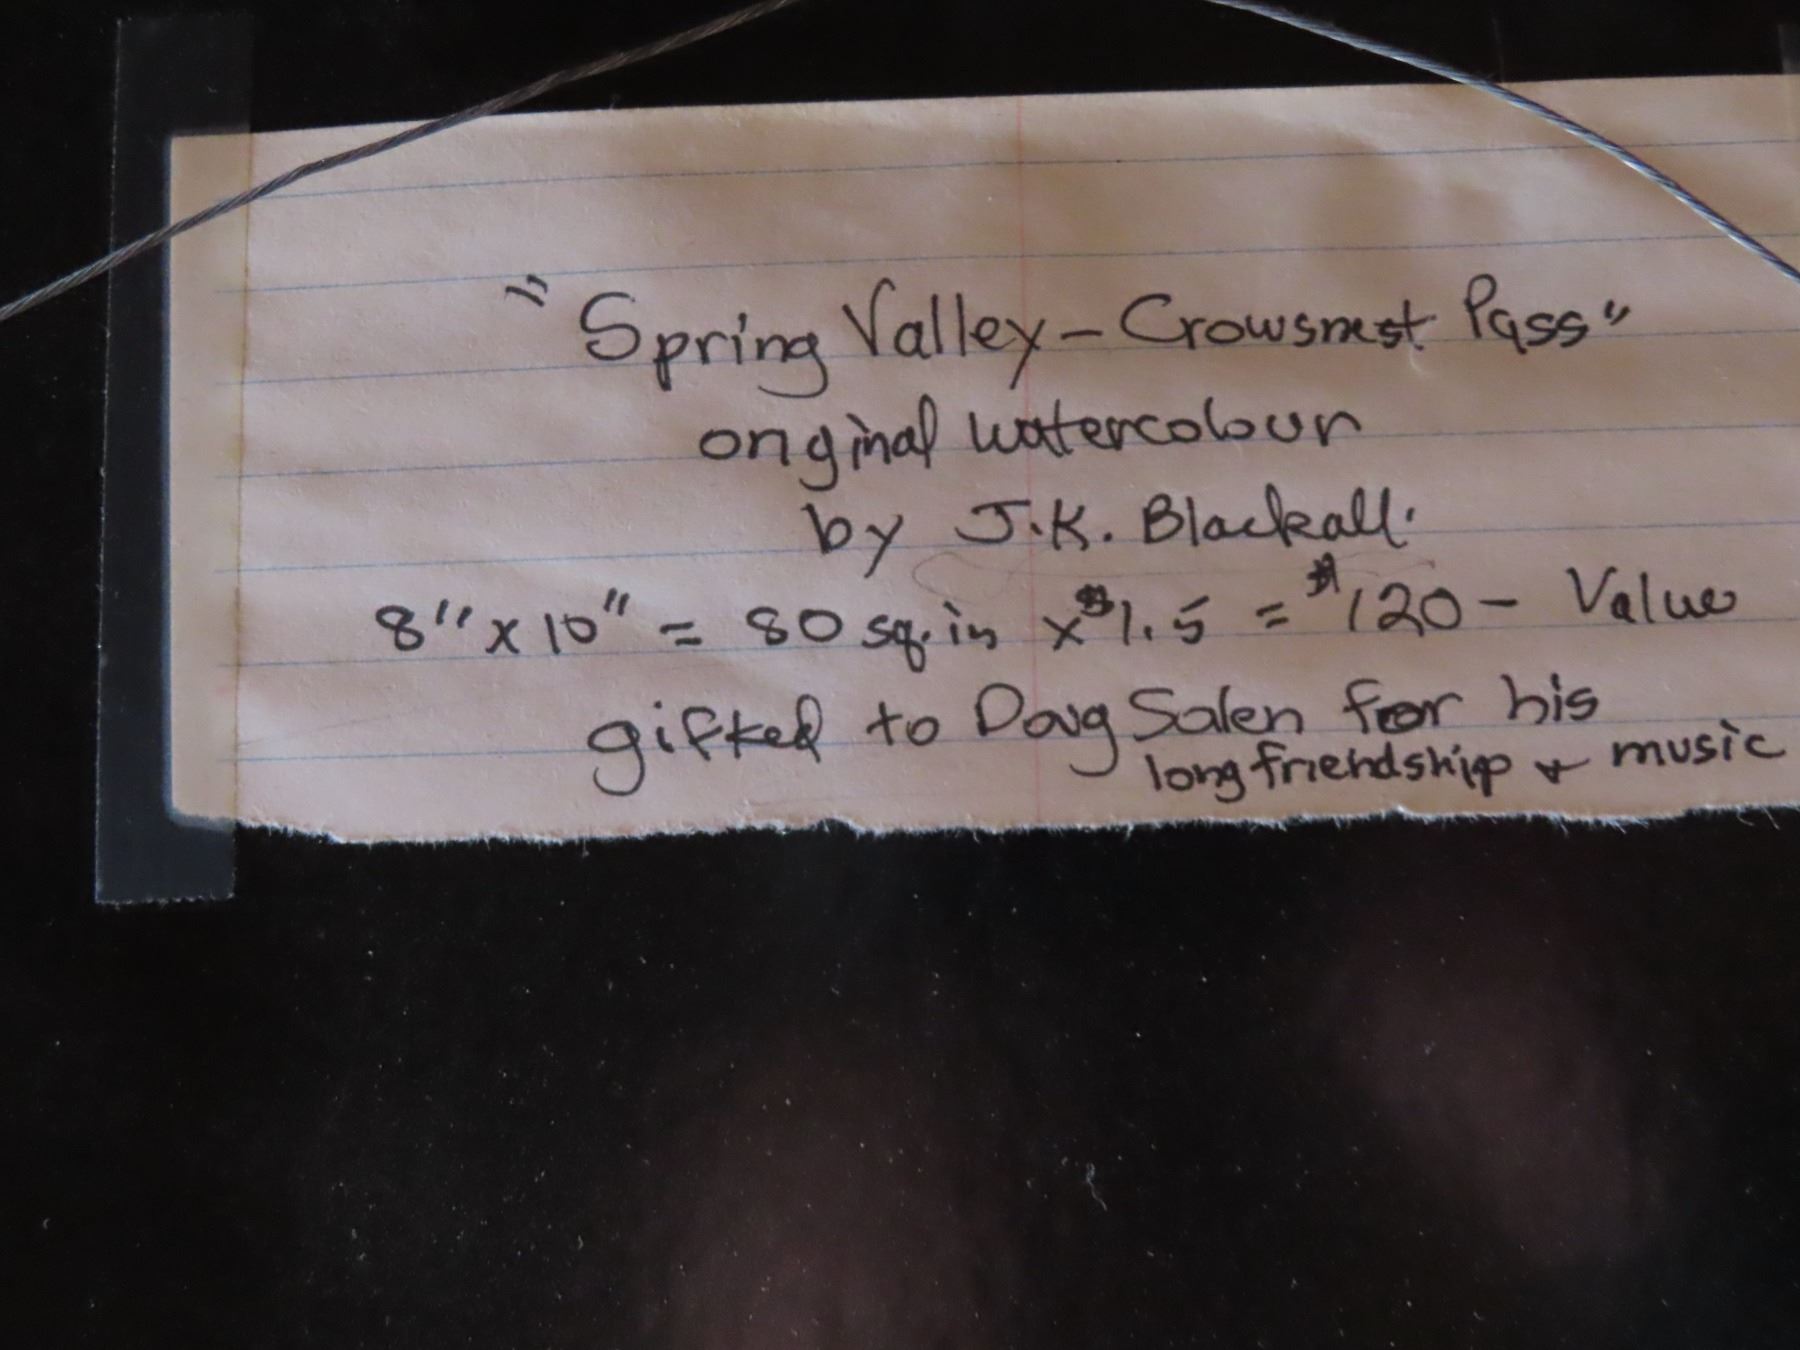 "Spring Valley - Crowsnest Pass"
original watercolour
by J.K. Blackall.
8" x 10" = 80 sq. in x $1.5 = $120 - Value
gifted to Doug Salen for his
long friendship & music